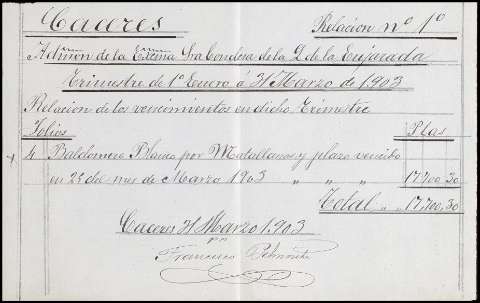 Caceres Relacion nº 1º
Admon de la Exma Sra Condesa de la Q. de la Enjarada
Trimestre de 1º Enero á 31 Marzo de 1.903
Relacion de los vencimientos en dicho Trimestre
Folios Ptas
4 Baldomero Blanco por Matallanas y plazo vencido
en 25 del mes de Marzo 1903 " " " 17,700,30
Total " " 17,700,30
Caceres 31 Marzo 1.903
Francisco